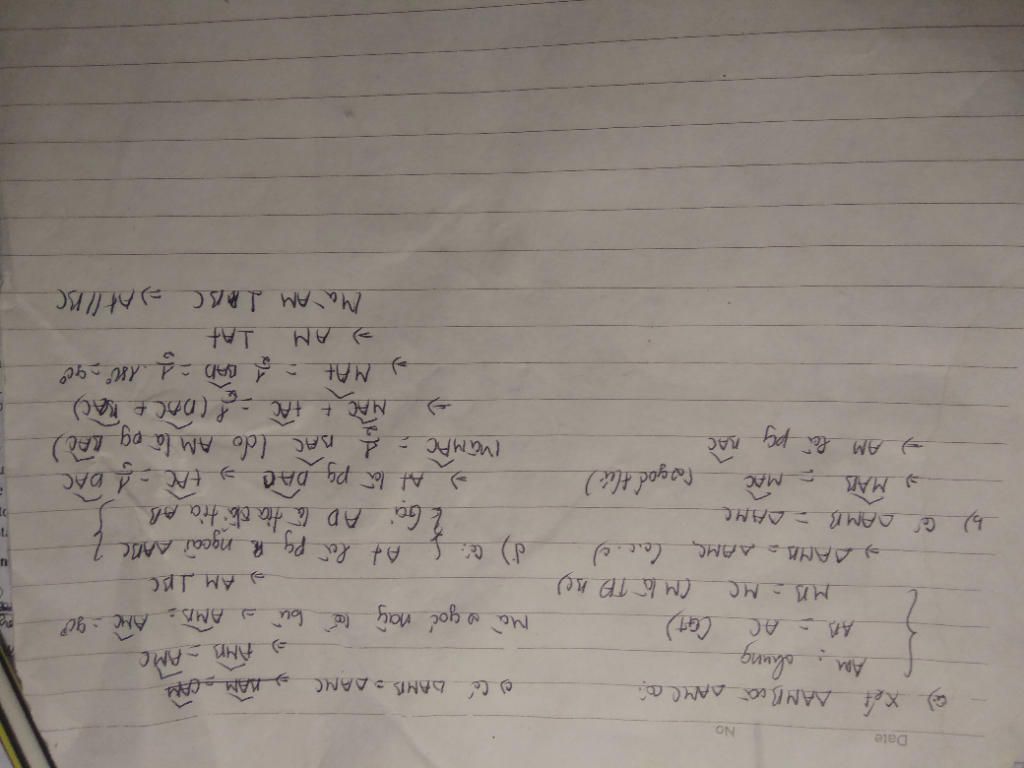 Date No
a) Xét ΔAMB và ΔAMC có:
AM: chung
AB = AC (GT)
MB = MC (M là TĐ BC)
⇒ ΔAMB = ΔAMC (c.c.c)
b) Có ΔAMB = ΔAMC
⇒ MAB = MAC (2 góc t/ứ)
⇒ AM là pg BAC
c) Có ΔAMB = ΔAMC ⇒ BAM = CAM
⇒ AMB = AMC
Mà 2 góc này kề bù ⇒ AMB = AMC = 90°
⇒ AM ⊥ BC
d) Có: { At là pg ngoài ΔABC }
{ Gọi AD là tia đối tia AB }
⇒ At là pg DAC ⇒ tAC = 1/2 DAC
Mà MAC = 1/2 BAC (do AM là pg BAC)
⇒ MAC + tAC = 1/2 (DAC + BAC)
⇒ MAt = 1/2 BAD = 1/2 . 180° = 90°
⇒ AM ⊥ At
Mà AM ⊥ BC ⇒ At // BC